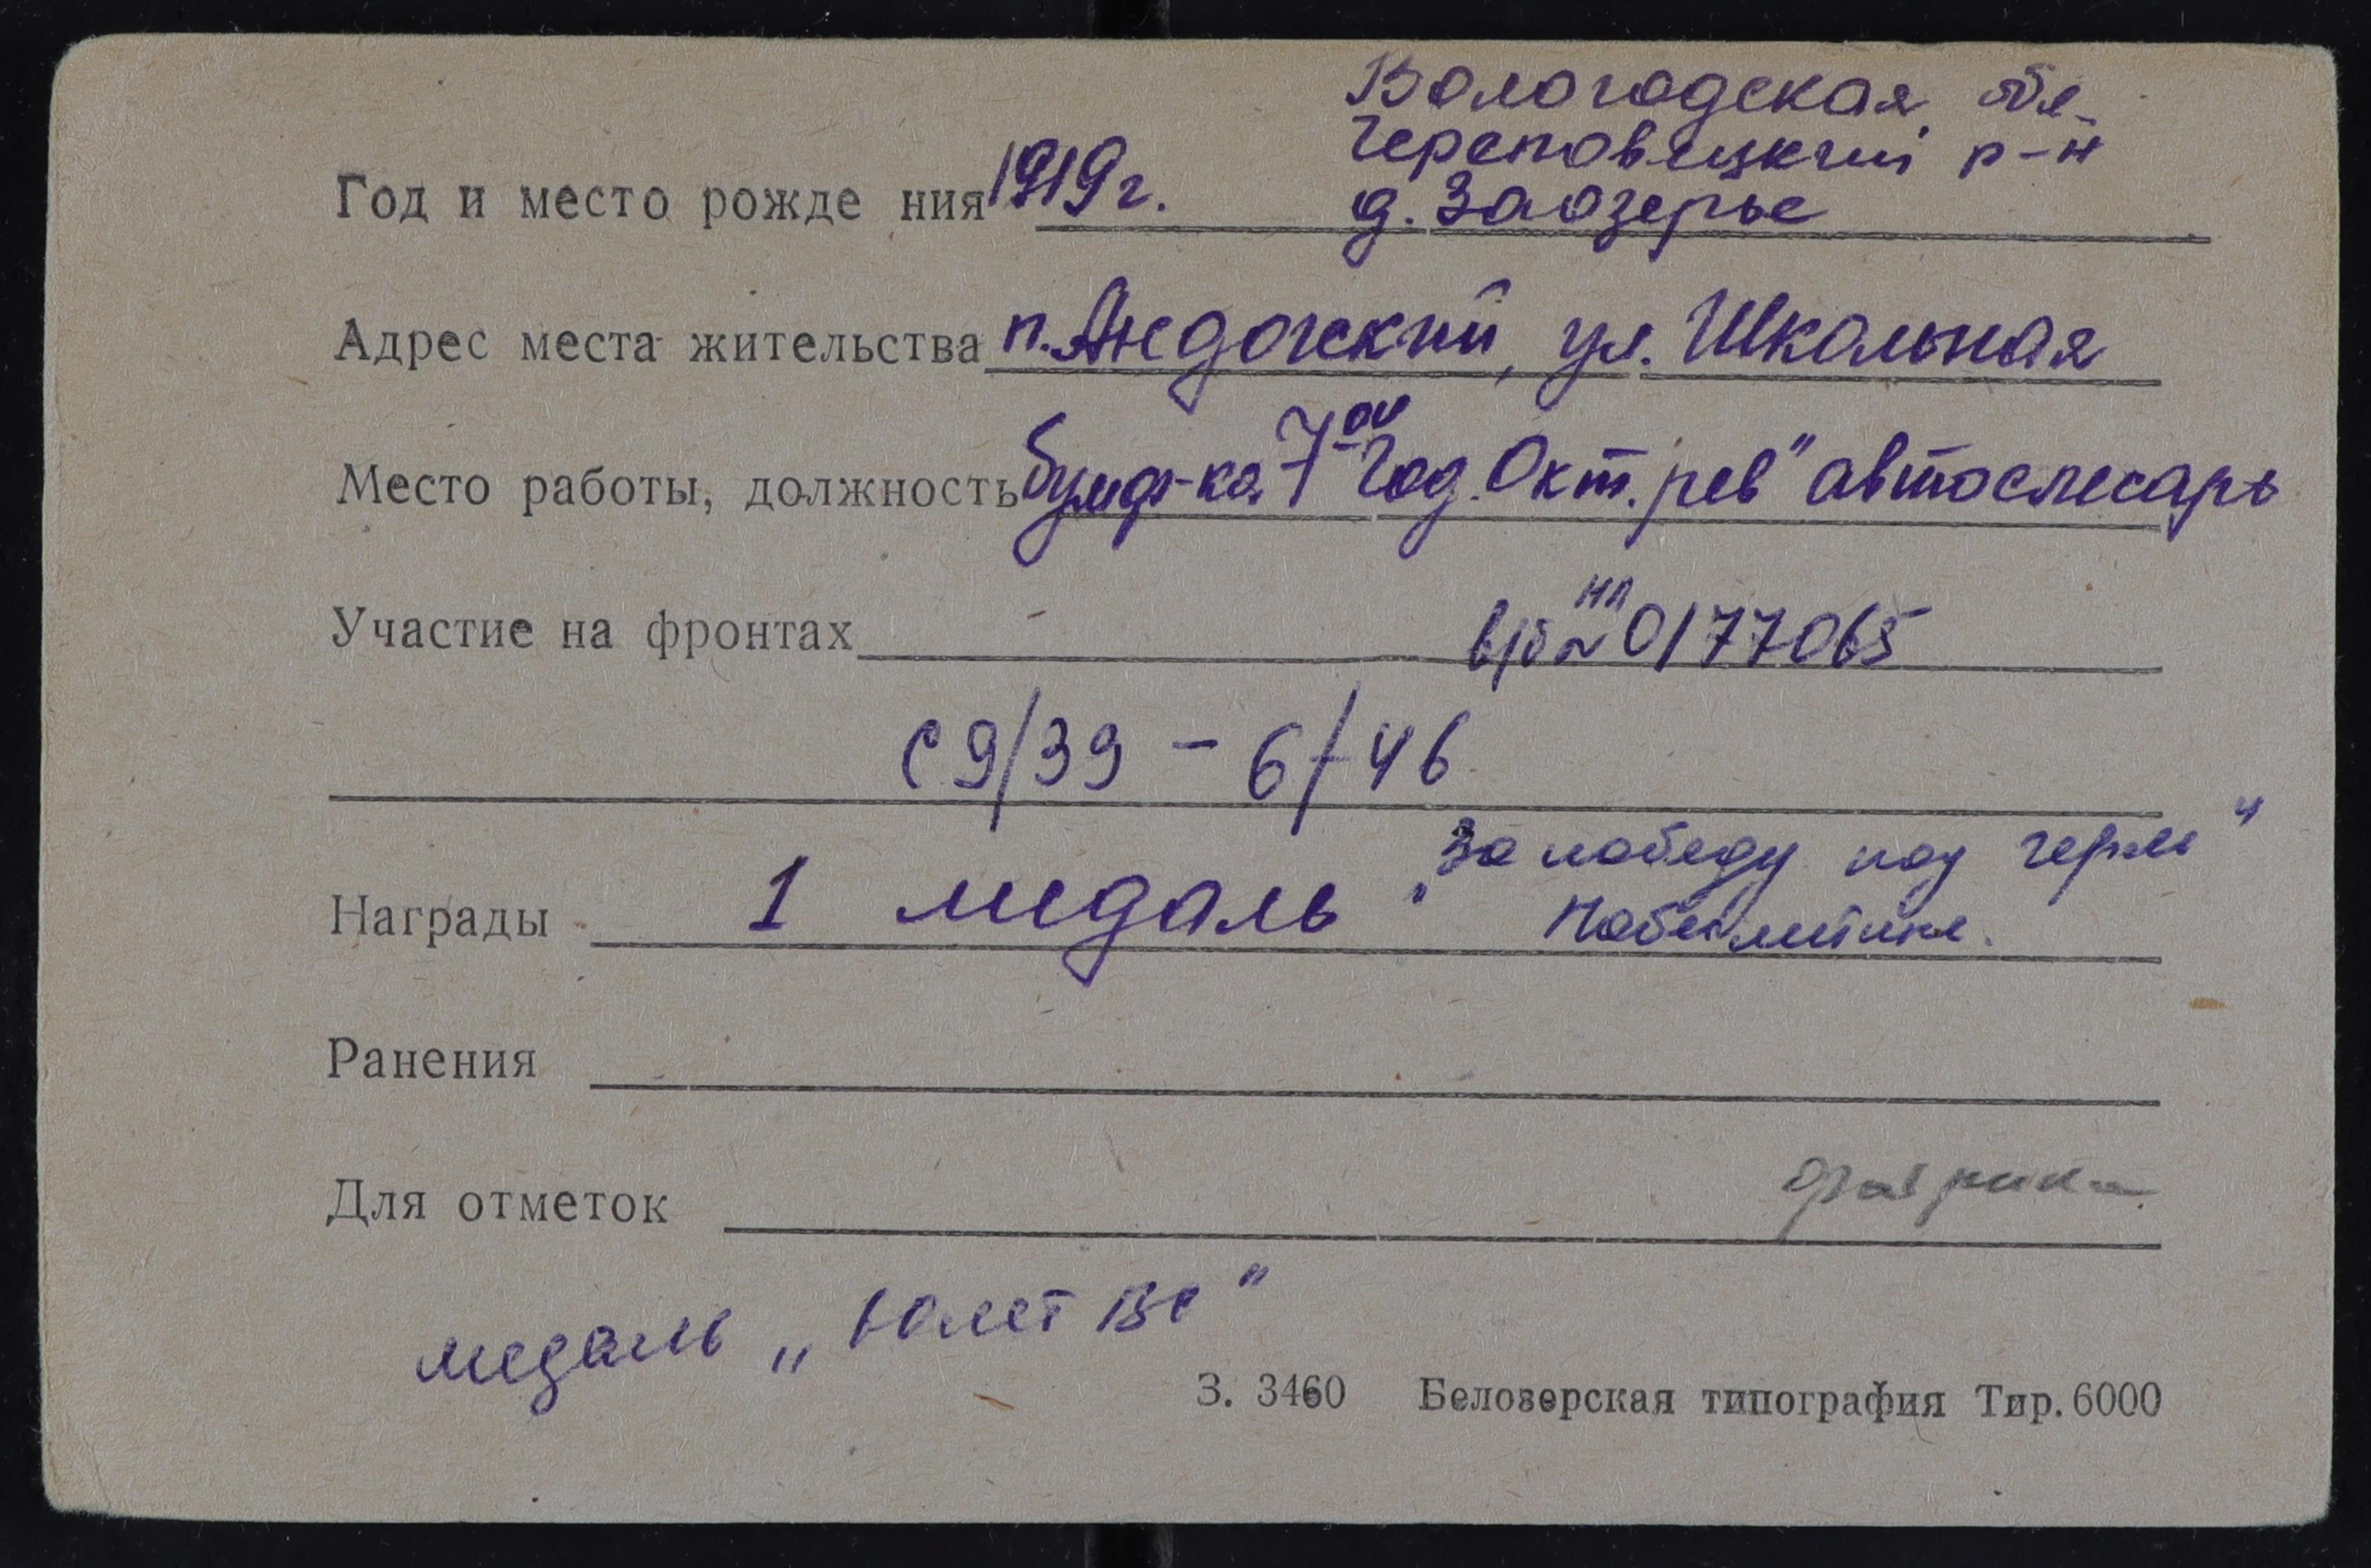 Вологодская обл.
Череповецкий р-н
Год и место рожде ния 1919г. д. Заозерье
Адрес места жительства п. Андогский, ул. Школьная
Место работы, должность бумф-ка 7ой Год. Окт. рев" автослесарь
Участие на фронтах в/б НП № 0177065
с 9/39 - 6/46
"За победу над герм"
Награды 1 медаль
Ранения
Для отметок фабрика
медаль „ 60 лет ВС"
З. 3460 Белозерская типография Тир. 6000